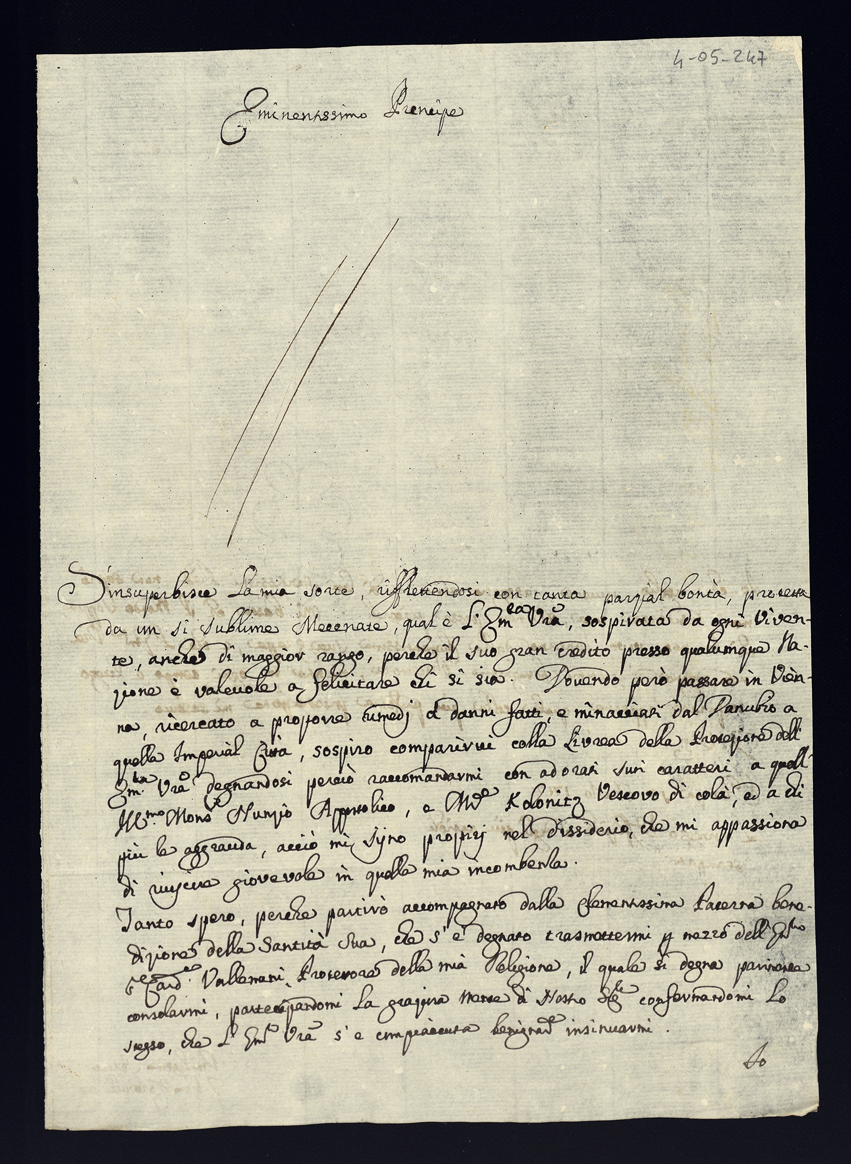 4-05-247
Eminentissimo Prencipe
S'insuperbisce la mia sorte, riffrettendosi con tanta parzial bontà, protetta
da un si sublime Mecenate, qual è L'Em.za Vra, sospirata da ogni viven-
te, anche di maggior rango, perche il suo gran credito presso qualunque Na-
zione è valevole a felicitare chi si sia. Dovendo però passare in Vien-
na, ricercato a proporre rimedj a danni fatti, e minacciati dal Danubio a
quella Imperial Città, sospiro comparirvi colla Livrea della Protezione dell'
Em.za Vra degnandosi perciò raccomandarmi con adorati suoi caratteri a quell'
Ill.mo Mons.r Nunzio Appostolico, e M.re Kolonitz Vescovo di colà, ed a chi
più le aggrada, acciò mi syno propizj nel dissiderio, che mi appassiona
di riuscire giovevole in quella mia incombenza.
Tanto spero, perche partirò accompagnato dalla Clementissima Paterna bene-
dizione della Santità Sua, che s'è degnato trasmettermi p mezzo dell'Em.mo
Card.e Vallemani Protettore della mia Religione, il quale si degna parimente
consolarmi, partecipandomi la grazia stessa di Nostro Sig.re confermandomi Lo
stesso, che L'Em.za Vra s'è compiacciuta benignam.te insinuarmi.
Io